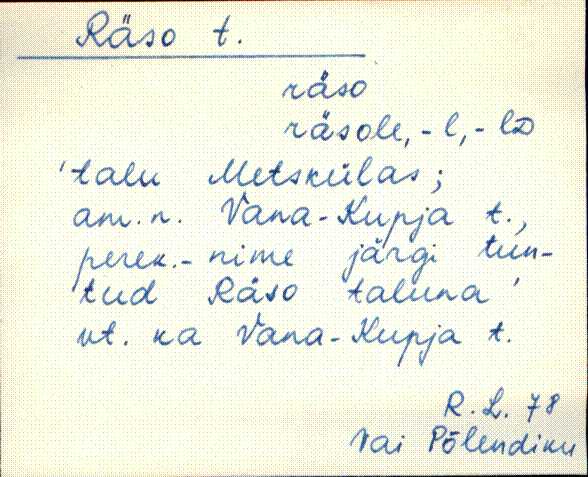 Räso t.
räso
räsole, -l, -lD
'talu Metskülas;
am.n. Vana-Kupja t.,
perek.-nime järgi tun-
tud Räso taluna'
vt. ka Vana-Kupja t.
R.L. 78
Vai Põlendiku